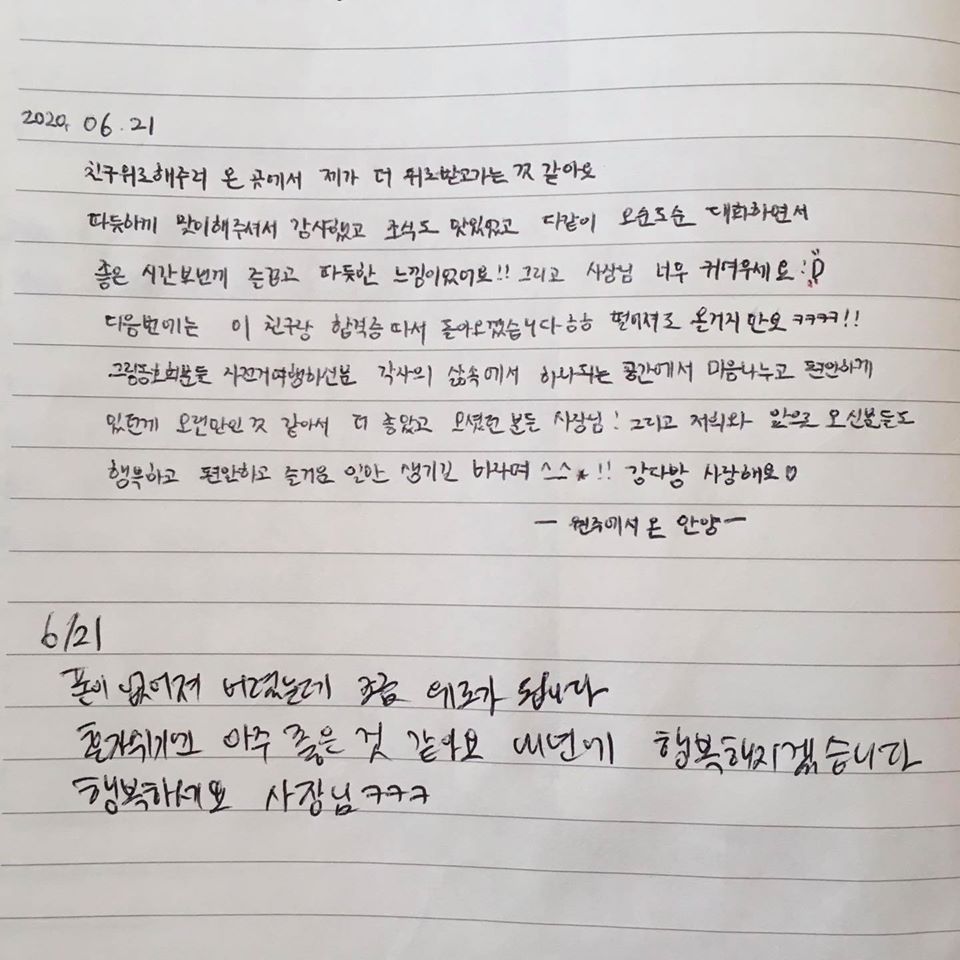 2020. 06. 21
친구위로해주러 온 곳에서 제가 더 위로받고가는 것 같아요
따듯하게 맞이해주셔서 감사했고 조식도 맛있었고 다같이 오순도순 대화하면서
좋은 시간보낸게 즐겁고 따듯한 느낌이었어요!! 그리고 사장님 너무 귀여우세요
다음번에는 이 친구랑 합격증 따서 돌아오겠습니다ㅎㅎ 떨어져도 올거지만요 ㅋㅋㅋㅋ!!
그림동호회분들 자전거여행하신분 각자의 삶속에서 하나되는 공간에서 마음나누고 편안하게
있던게 오랜만인 것 같아서 더 좋았고 오셨던 분들 사장님! 그리고 저희와 앞으로 오신분들도
행복하고 편안하고 즐거운 일만 생기길 바라며 ^^★!! 강다방 사랑해요♡
ㅡ 원주에서 온 안양 ㅡ
6/21
폰이 없어져 버렸는데 조금 위로가 됩니다
아주 좋은 것 같아요 내년에 행복해지겠습니다
행복하세요 사장님 ㅋㅋㅋ